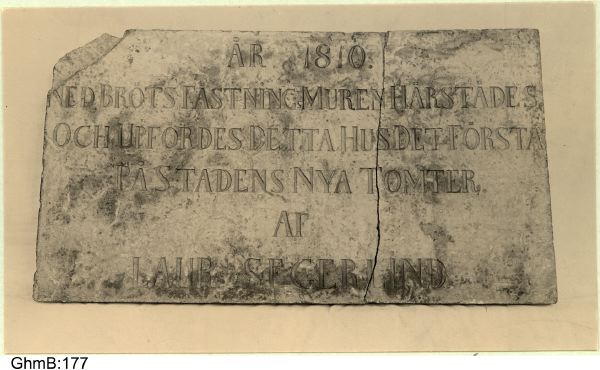 ÅR 1810.
NEDBROTS FÄSTNINGSMUREN HÄRSTÄDES
OCH UPFÖRDES DETTA HUS DET FÖRSTA
PÅ STADENS NYA TOMTER.
AF
LAUR. SEGERLIND
GhmB:177